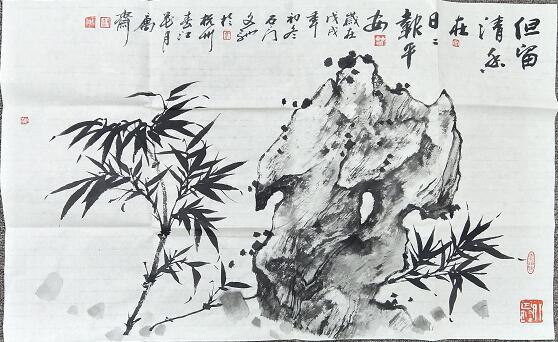 但留
清香
在
日日
報平
安
歲在
戊戌
年
初冬
石門
文洲
於
杭州
春江
花月
寓
齋